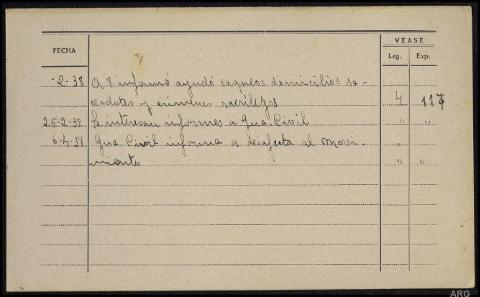 VEASE
FECHA
Leg. Exp.
-2-38 A. 8 informó ayudó saqueos domicilios sa-
cerdotes y crímenes sacrílegos 4 117
25-2-38 Se interesan informes a Gua. Civil " "
6-4-38 Gua. Civil informa es desafecta al Movi- "
miento " "
ARG